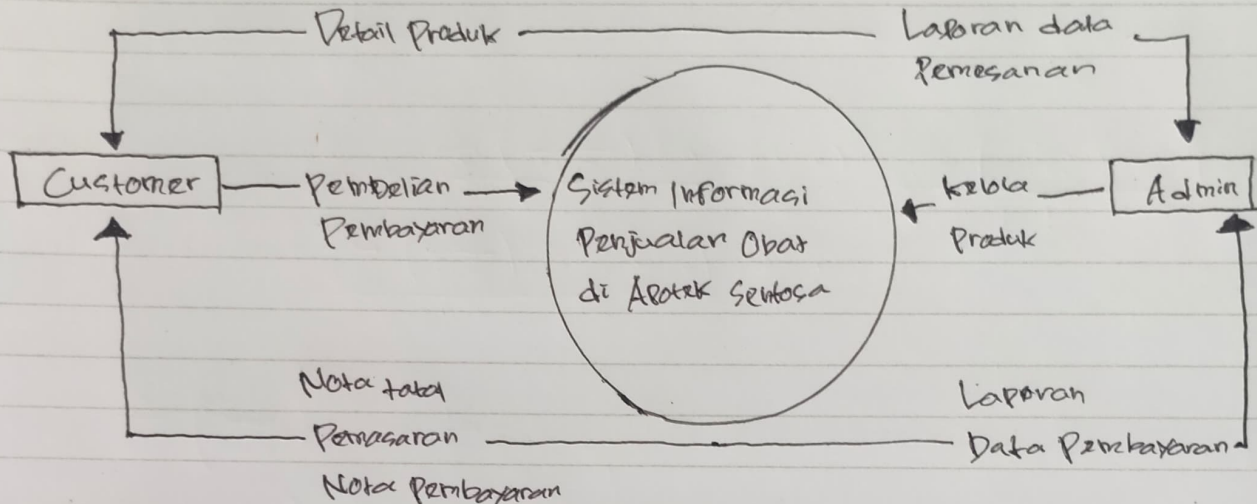 Detail Produk
Laporan data
Pemesanan
Customer
Pembelian
Pembayaran
Sistem Informasi
Penjualan Obat
di Apotek Sentosa
Kelola
Produk
Admin
Nota total
Pemasaran
Nota Pembayaran
Laporan
Data Pembayaran